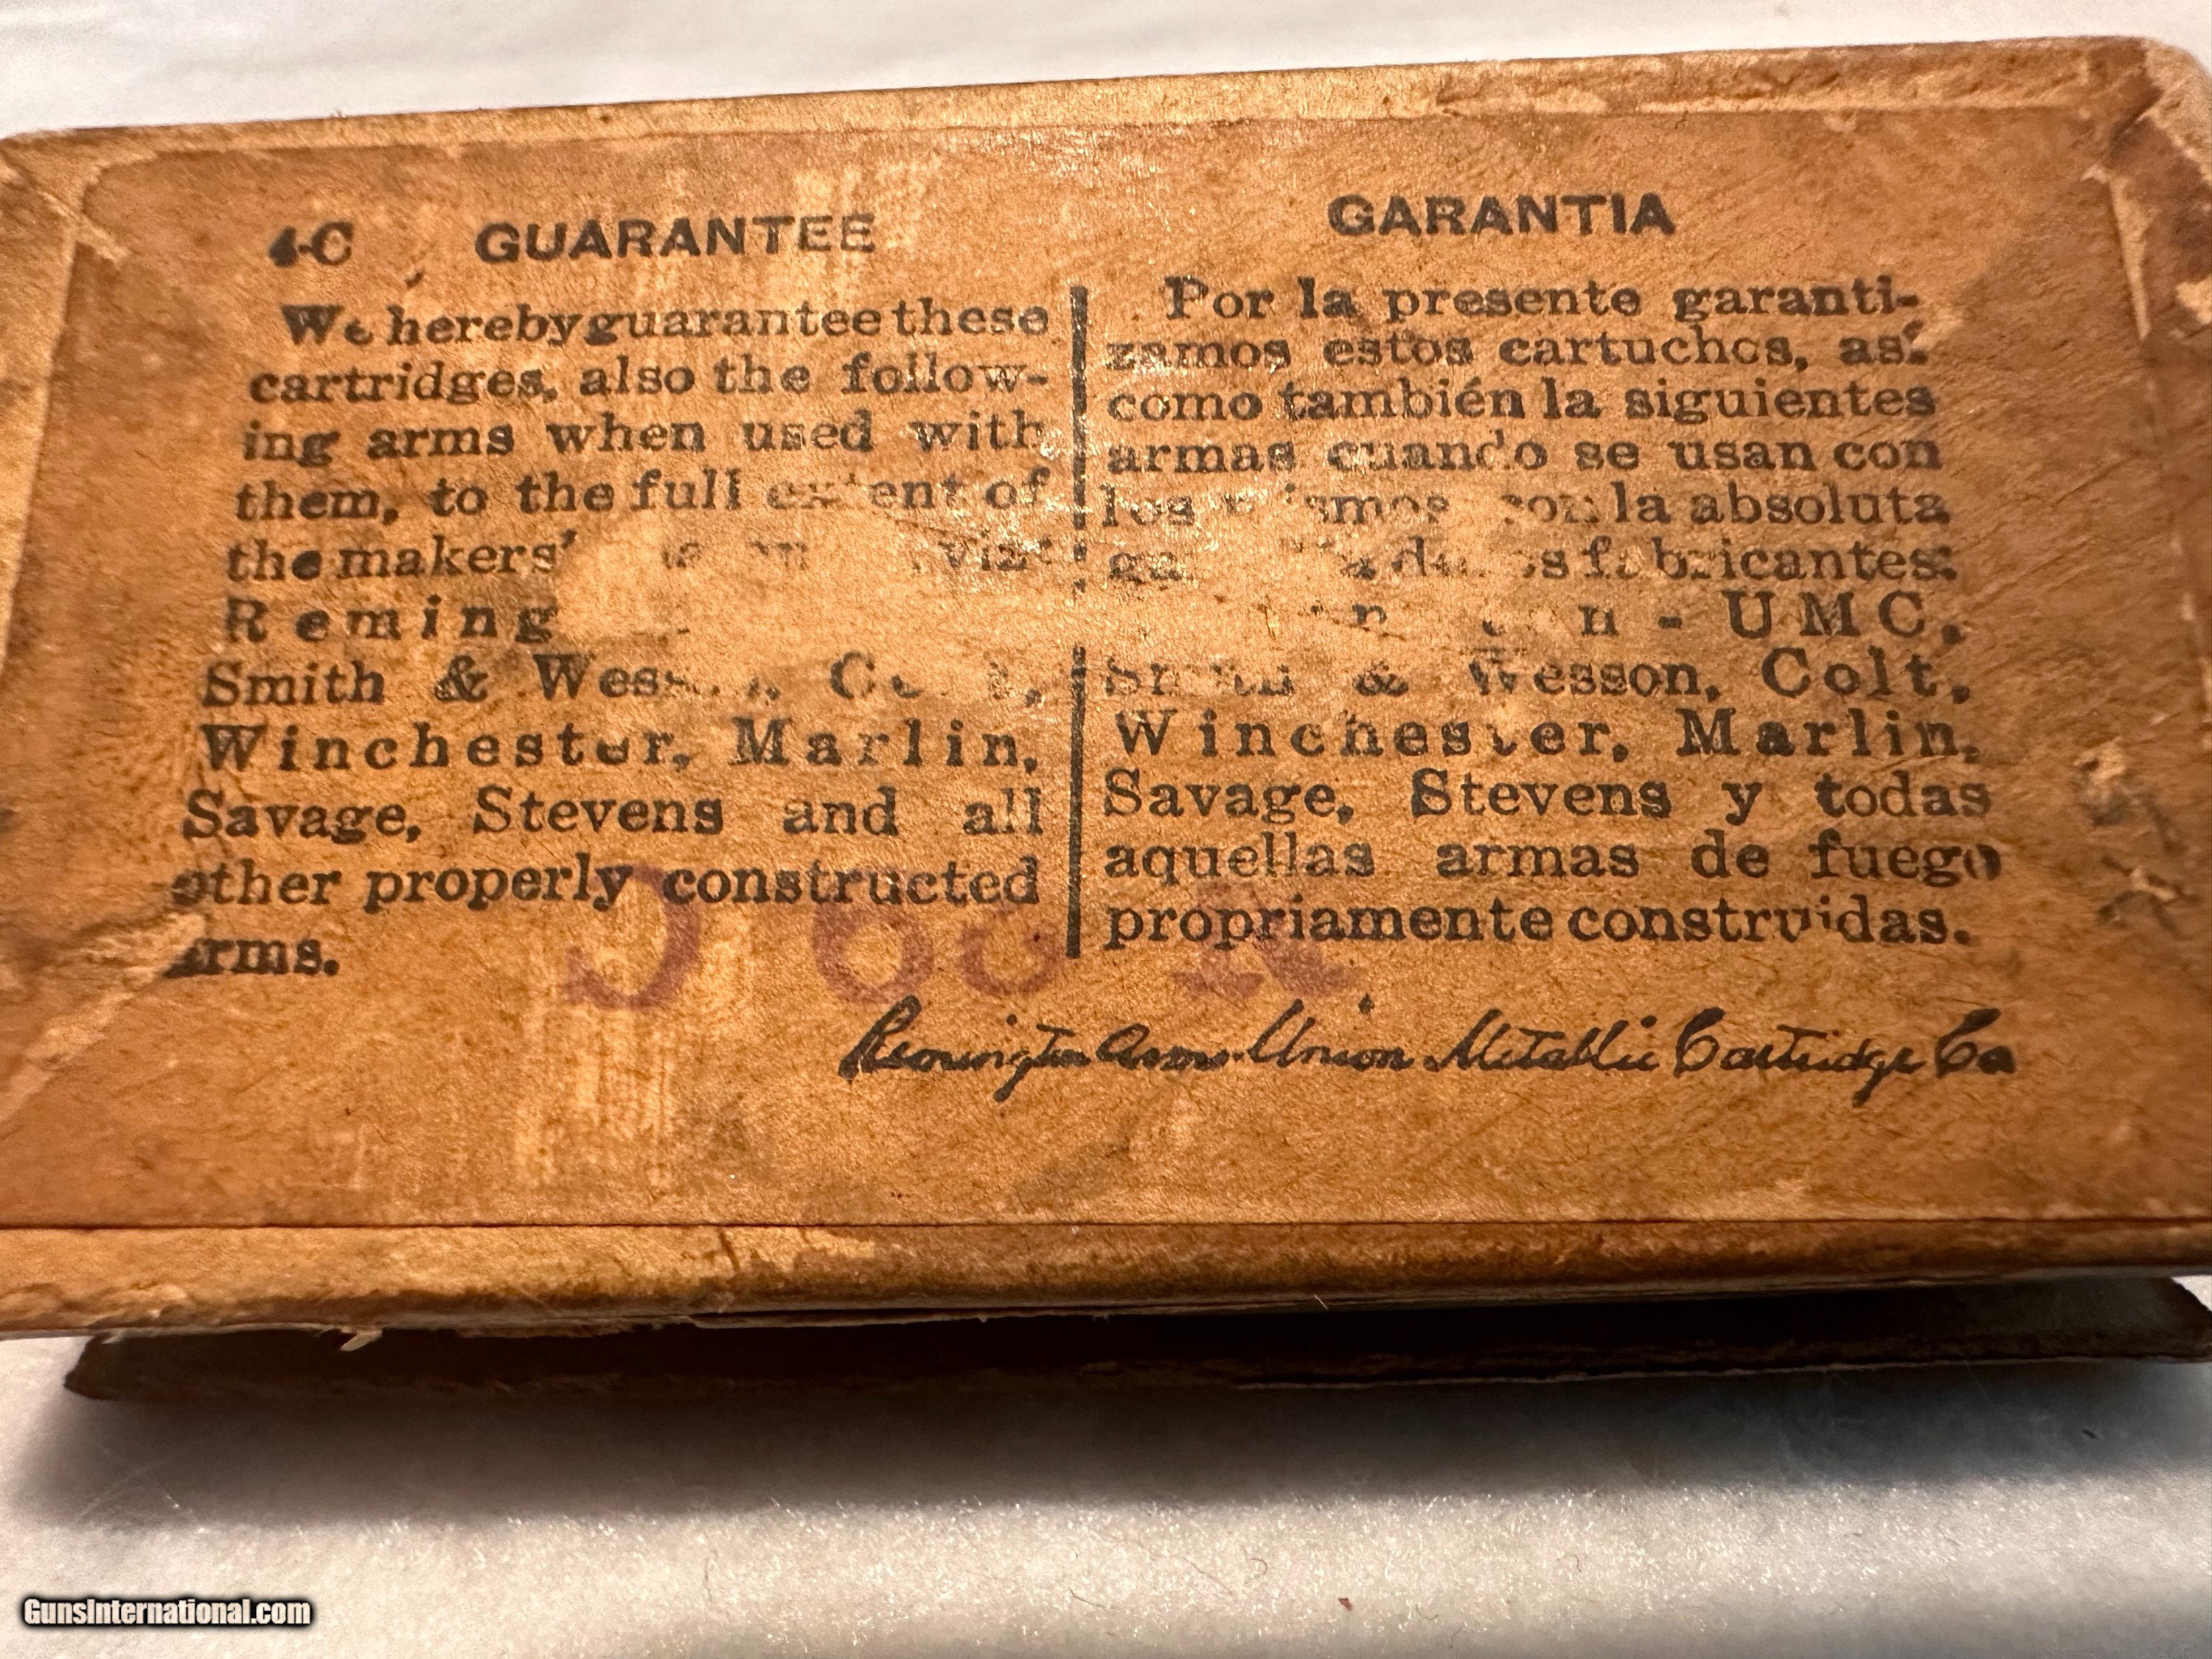 4-C GUARANTEE
We hereby guarantee these
cartridges, also the follow-
ing arms when used with
them, to the full extent of
the makers' viz:
Smith & Wesson, Colt,
Winchester, Marlin,
Savage, Stevens and all
other properly constructed
arms.
GARANTIA
Por la presente garanti-
zamos estos cartuchos, así
como también la siguientes
armas cuando se usan con
los mismos con la absoluta
fabricantes:
UMC,
Smith & Wesson, Colt,
Winchester, Marlin,
Savage, Stevens y todas
aquellas armas de fuego
propriamente construidas.
Remington Arms-Union Metallic Cartridge Co
GunsInternational.com